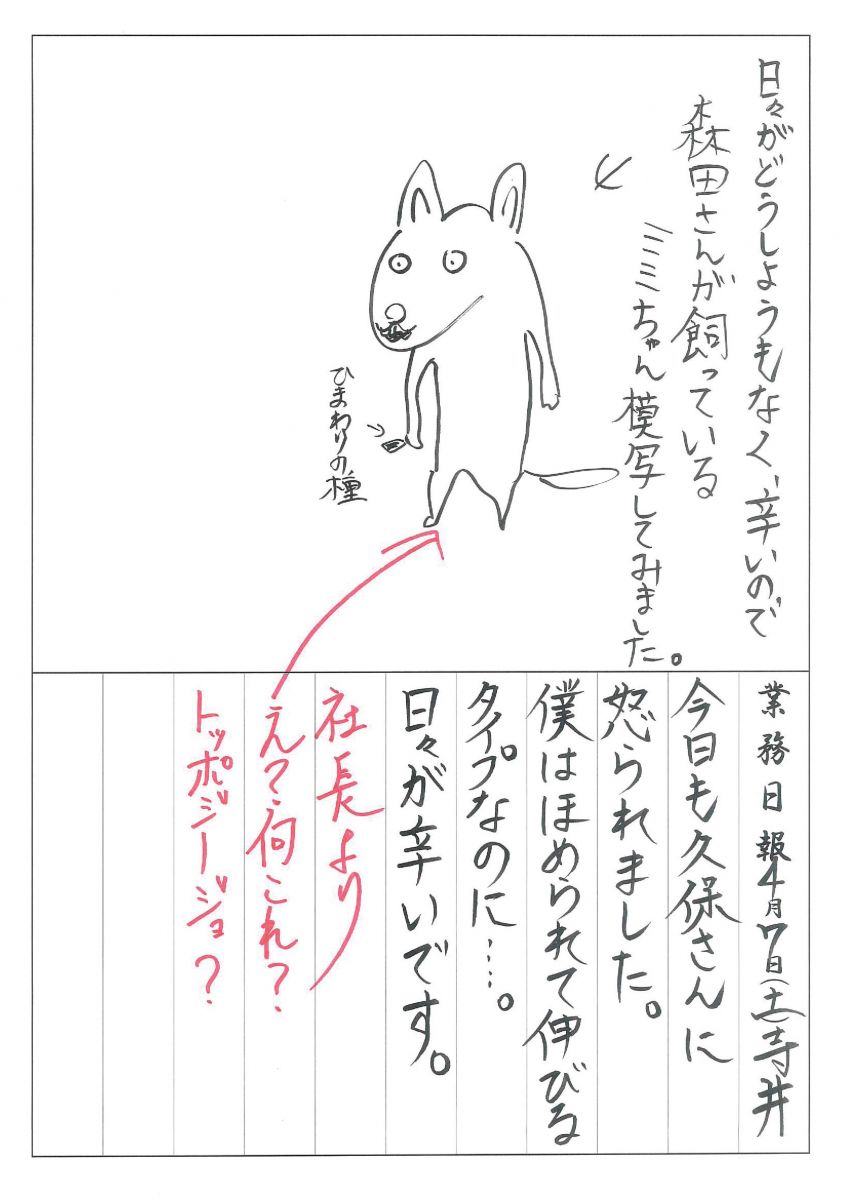 日々がどうしようもなく、辛いので
森田さんが飼っている
ミミちゃん模写してみました。
ひまわりの種
業務日報4月7日(土)寺井
今日も久保さんに
怒られました。
僕はほめられて伸びる
タイプなのに……。
日々が辛いです。
社長より
え?何これ?
トッポジージョ?